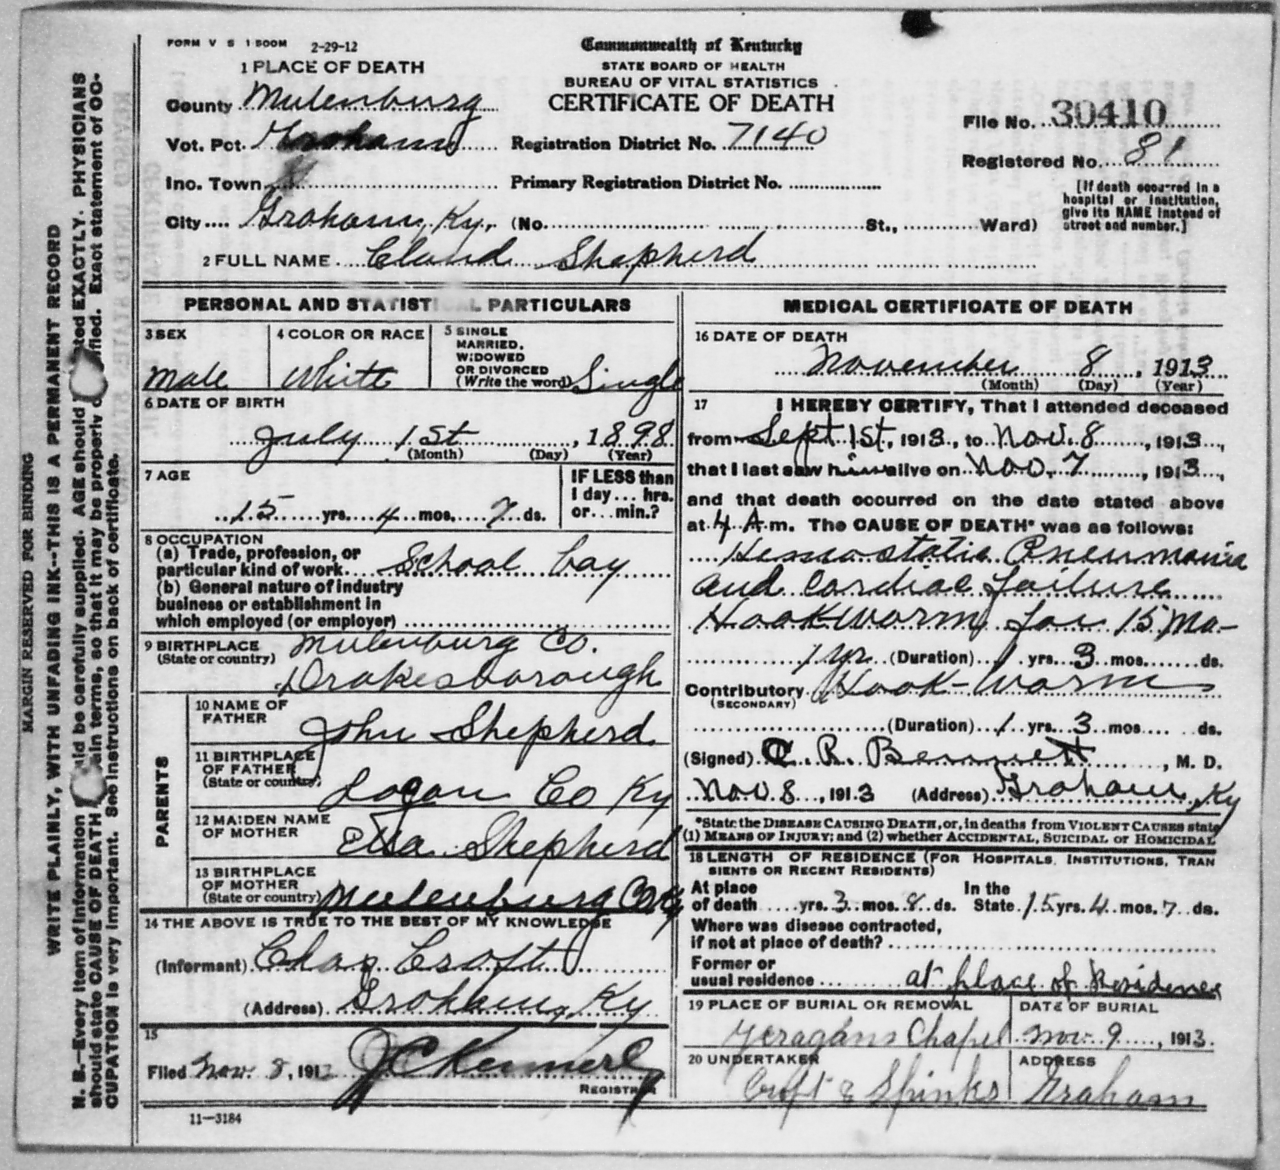 FORM V S 1 500M 2-29-12
Commonwealth of Kentucky
STATE BOARD OF HEALTH
BUREAU OF VITAL STATISTICS
CERTIFICATE OF DEATH
1 PLACE OF DEATH
County Mulenburg
Vot. Pct. Graham Registration District No. 7140
File No. 30410
Registered No. 81
Ino. Town Primary Registration District No.
[If death occurred in a hospital or institution, give its NAME instead of street and number.]
City Graham, Ky. (No. St., Ward)
2 FULL NAME Claud Shepherd
PERSONAL AND STATISTICAL PARTICULARS
3 SEX Male
4 COLOR OR RACE White
5 SINGLE MARRIED, WIDOWED OR DIVORCED (Write the word) Single
6 DATE OF BIRTH
July 1st, 1898
(Month) (Day) (Year)
7 AGE
15 yrs. 4 mos. 7 ds.
IF LESS than 1 day... hrs. or... min.?
8 OCCUPATION
(a) Trade, profession, or particular kind of work School boy
(b) General nature of industry business or establishment in which employed (or employer)
9 BIRTHPLACE (State or country) Mulenburg Co. Drakesborough
PARENTS
10 NAME OF FATHER John Shepherd
11 BIRTHPLACE OF FATHER (State or country) Logan Co Ky
12 MAIDEN NAME OF MOTHER Shepherd
13 BIRTHPLACE OF MOTHER (State or country) Mulenburg Co Ky
14 THE ABOVE IS TRUE TO THE BEST OF MY KNOWLEDGE
(Informant) Chas Croft
(Address) Graham, Ky
15
Filed Nov. 8, 1913
REGISTRAR
11—3184
MEDICAL CERTIFICATE OF DEATH
16 DATE OF DEATH
November 8, 1913
(Month) (Day) (Year)
17 I HEREBY CERTIFY, That I attended deceased
from Sept 1st, 1913, to Nov. 8, 1913,
that I last saw him alive on Nov. 7, 1913,
and that death occurred on the date stated above
at 4 A.m. The CAUSE OF DEATH* was as follows:
Hemostatic Pneumonia
and Cardiac failure
Hookworm for 15 Mo-
1 yr (Duration) 1 yrs. 3 mos. ds.
Contributory Hook-Worm
(SECONDARY)
(Duration) 1 yrs. 3 mos. ds.
(Signed) C. R. Bennett, M. D.
Nov 8, 1913 (Address) Graham, Ky
*State the DISEASE CAUSING DEATH, or, in deaths from VIOLENT CAUSES state
(1) MEANS OF INJURY; and (2) whether ACCIDENTAL, SUICIDAL or HOMICIDAL
18 LENGTH OF RESIDENCE (FOR HOSPITALS, INSTITUTIONS, TRAN
SIENTS OR RECENT RESIDENTS)
At place of death yrs. 3 mos. 8 ds. In the State 15 yrs. 4 mos. 7 ds.
Where was disease contracted, if not at place of death?
Former or usual residence at place of Residence
19 PLACE OF BURIAL OR REMOVAL Chapel
DATE OF BURIAL Nov. 9, 1913
20 UNDERTAKER Croft & Spinks
ADDRESS Graham
MARGIN RESERVED FOR BINDING
WRITE PLAINLY, WITH UNFADING INK--THIS IS A PERMANENT RECORD
N. B.—Every item of information should be carefully supplied. AGE should stated EXACTLY. PHYSICIANS
should state CAUSE OF DEATH in plain terms, so that it may be properly classified. Exact statement of OC-
CUPATION is very important. See instructions on back of certificate.